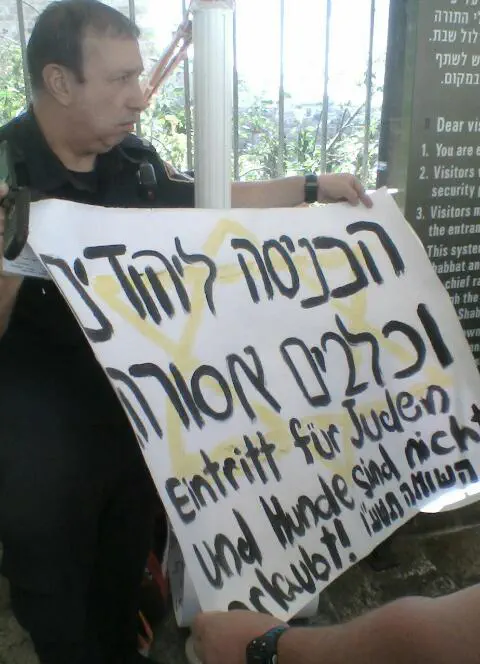 הכניסה ליהודים
וכלבים אסורה
Eintritt für Juden
und Hunde sind nicht
erlaubt! תשע"ו
י התורה
לול שבת.
ש לשתף
במקום.
Dear vis
1. You are e
2. Visitors
security p
3. Visitors m
the entran
This syste
habbat an
chief ra
gh the
Shab